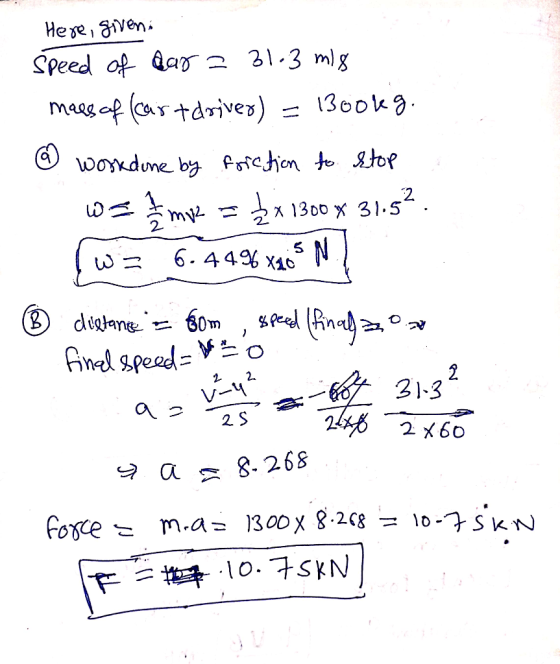 Here, given:
Speed of car = 31.3 m/s
mass of (car + driver) = 1300 kg.
(a) workdone by friction to stop
w = 1/2 mv² = 1/2 x 1300 x 31.5².
w = 6.4496 x 10⁵ N
(B) distance = 60m, speed (final) = 0
final speed = V = 0
a = v²-u² / 2s = 31.3² / 2 x 60
⇒ a = 8.268
force = m.a = 1300 x 8.268 = 10.75 kN
F = 10.75KN